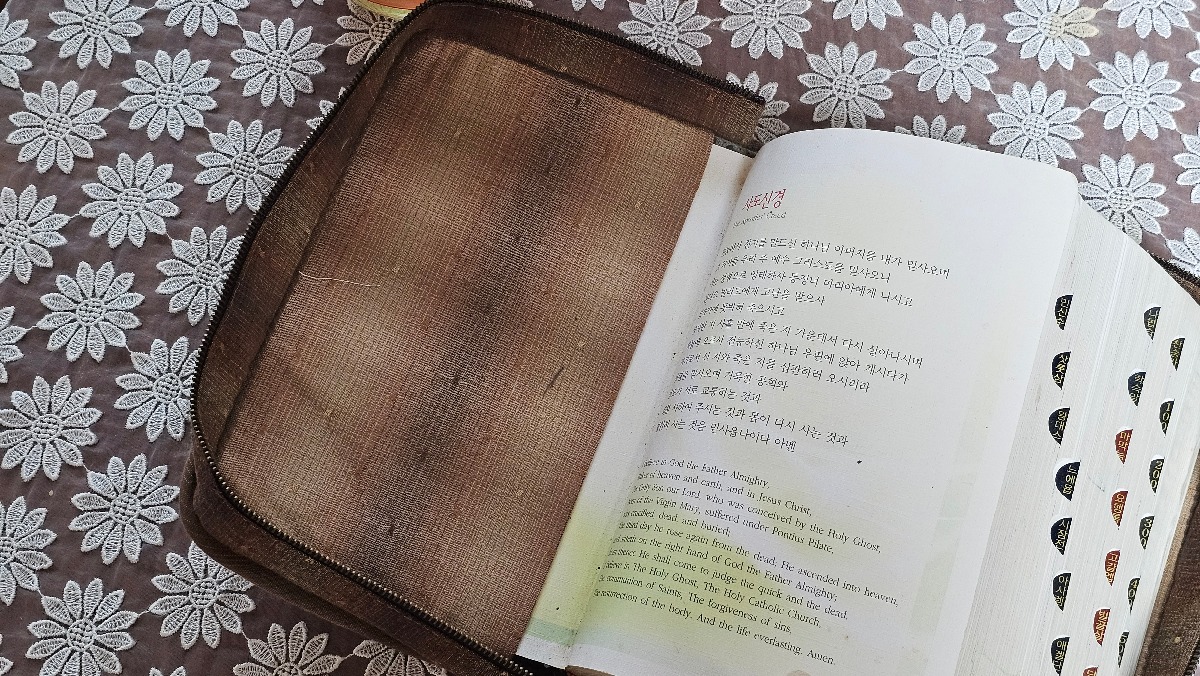 사도신경
The Apostles' Creed
천지를 만드신 하나님 아버지를 내가 믿사오며
우리 주 예수 그리스도를 믿사오니
잉태하사 동정녀 마리아에게 나시고
고난을 받으사
죽으시고
사흘 만에 죽은 자 가운데서 다시 살아나시며
전능하신 하나님 우편에 앉아 계시다가
산 자와 죽은 자를 심판하러 오시리라
믿사오며 거룩한 공회와
서로 교통하는 것과
사하여 주시는 것과 몸이 다시 사는 것과
사는 것을 믿사옵나이다 아멘
believe in God the Father Almighty,
of heaven and earth, and in Jesus Christ,
Only Son our Lord, who was conceived by the Holy Ghost,
of the Virgin Mary, suffered under Pontius Pilate,
crucified, dead, and buried;
third day he rose again from the dead, He ascended into heaven,
sitteth on the right hand of God the Father Almighty;
thence He shall come to judge the quick and the dead.
believe in The Holy Ghost, The Holy Catholic Church,
communion of Saints, The forgiveness of sins,
resurrection of the body. And the life everlasting. Amen.
민신수
삿웃상
왕대스
느에욥
사잠전
아사렘
애겔단
마막
요행
고갈
100
200
300